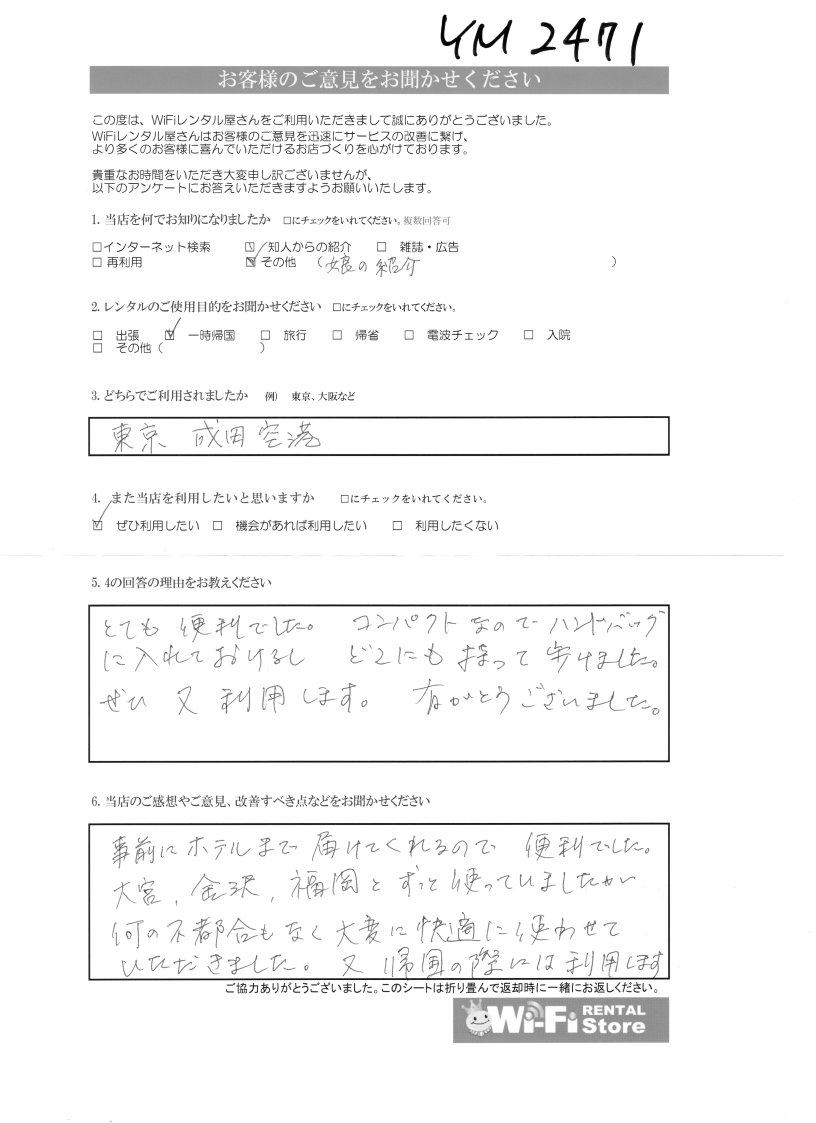 YM 2471
お客様のご意見をお聞かせください
この度は、WiFiレンタル屋さんをご利用いただきまして誠にありがとうございました。
WiFiレンタル屋さんはお客様のご意見を迅速にサービスの改善に繋げ、
より多くのお客様に喜んでいただけるお店づくりを心がけております。
貴重なお時間をいただき大変申し訳ございませんが、
以下のアンケートにお答えいただきますようお願いいたします。
1. 当店を何でお知りになりましたか □にチェックをいれてください。複数回答可
□インターネット検索 ☑知人からの紹介 □ 雑誌・広告
□ 再利用 ☑その他 (娘の紹介 )
2. レンタルのご使用目的をお聞かせください □にチェックをいれてください。
□ 出張 ☑ 一時帰国 □ 旅行 □ 帰省 □ 電波チェック □ 入院
□ その他 ( )
3. どちらでご利用されましたか 例) 東京、大阪など
東京 成田空港
4. また当店を利用したいと思いますか □にチェックをいれてください。
☑ ぜひ利用したい □ 機会があれば利用したい □ 利用したくない
5. 4の回答の理由をお教えください
とても 便利でした。 コンパクトなので ハンドバッグ
に入れておけるし どこにも 持って 歩けました。
ぜひ 又 利用します。 有がとうございました。
6. 当店のご感想やご意見、改善すべき点などをお聞かせください
事前にホテルまで 届けてくれるので 便利でした。
大宮、金沢、福岡とずっと使っていましたが
何の不都合もなく大変に快適に使わせて
いただきました。又帰国の際には利用します
ご協力ありがとうございました。このシートは折り畳んで返却時に一緒にお返しください。
Wi-Fi RENTAL Store